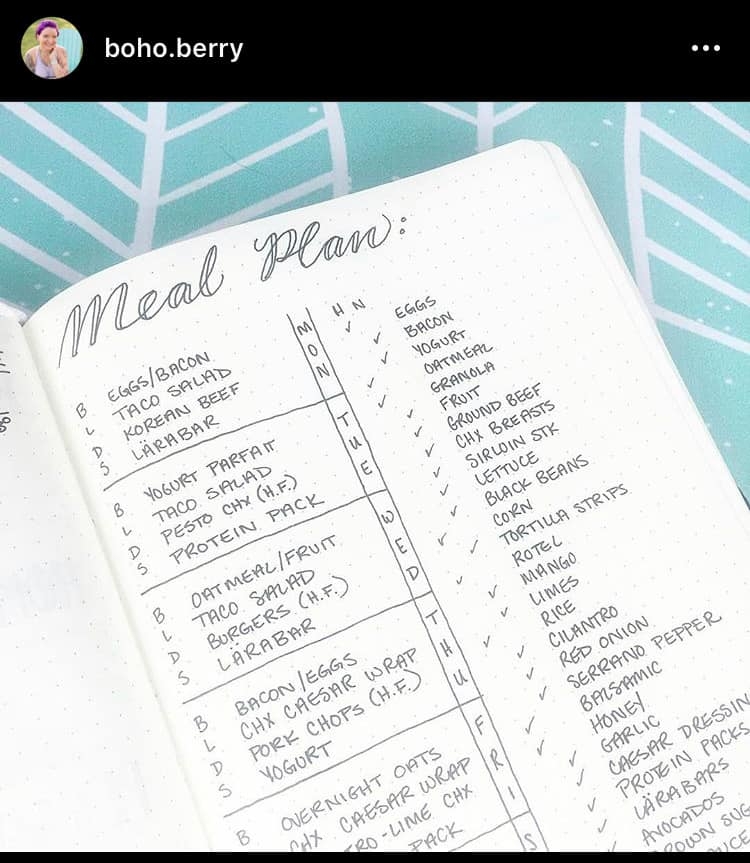 boho.berry
Meal Plan:
MON
B EGGS/BACON
L TACO SALAD
D KOREAN BEEF
S LÄRABAR
TUE
B YOGURT PARFAIT
L TACO SALAD
D PESTO CHX (H.F.)
S PROTEIN PACK
WED
B OATMEAL/FRUIT
L TACO SALAD
D BURGERS (H.F.)
S LÄRABAR
THU
B BACON/EGGS
L CHX CAESAR WRAP
D PORK CHOPS (H.F.)
S YOGURT
FRI
B OVERNIGHT OATS
CHX CAESAR WRAP
TRO-LIME CHX
PACK
S
H N
✓ EGGS
✓ BACON
✓ YOGURT
✓ OATMEAL
✓ GRANOLA
✓ FRUIT
✓ GROUND BEEF
✓ CHX BREASTS
✓ SIRLOIN STK
✓ LETTUCE
✓ BLACK BEANS
✓ CORN
✓ TORTILLA STRIPS
✓ ROTEL
✓ MANGO
✓ LIMES
✓ RICE
✓ CILANTRO
✓ RED ONION
✓ SERRANO PEPPER
✓ BALSAMIC
✓ HONEY
✓ GARLIC
✓ CAESAR DRESSIN
✓ PROTEIN PACKS
✓ LÄRABARS
✓ AVOCADOS
ROWN SUG